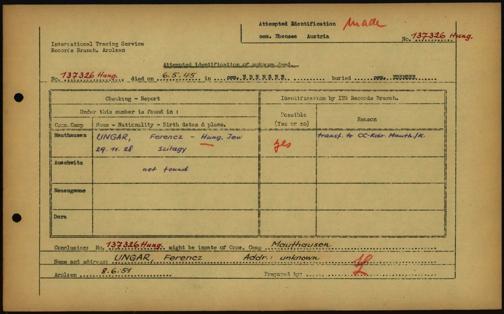 Attempted Identification made
cem. Ebensee Austria
No. 137326 Hung.
International Tracing Service
Records Branch, Arolsen
Attempted identification of unknown dead.
No. 137326 Hung. died on 6.5.45 in cem. EBENSEE buried cem. EBENSEE
Checking - Report
Identification by ITS Records Branch.
Under this number is found in :
Possible
(Yes or no)
Reason
Conc.Camp Name - Nationality - Birth dates & place.
Mauthausen UNGAR, Ferencz - Hung. Jew yes transf. to CC-Kdo Mauth./K.
29.11.28 Szilagy
Auschwitz not found
Neuengamme
Dora
Conclusion: No. 137326 Hung. might be inmate of Conc. Camp Mauthausen
Name and address: UNGAR, Ferencz Addr.: unknown
Arolsen 8.6.51 Prepared by: